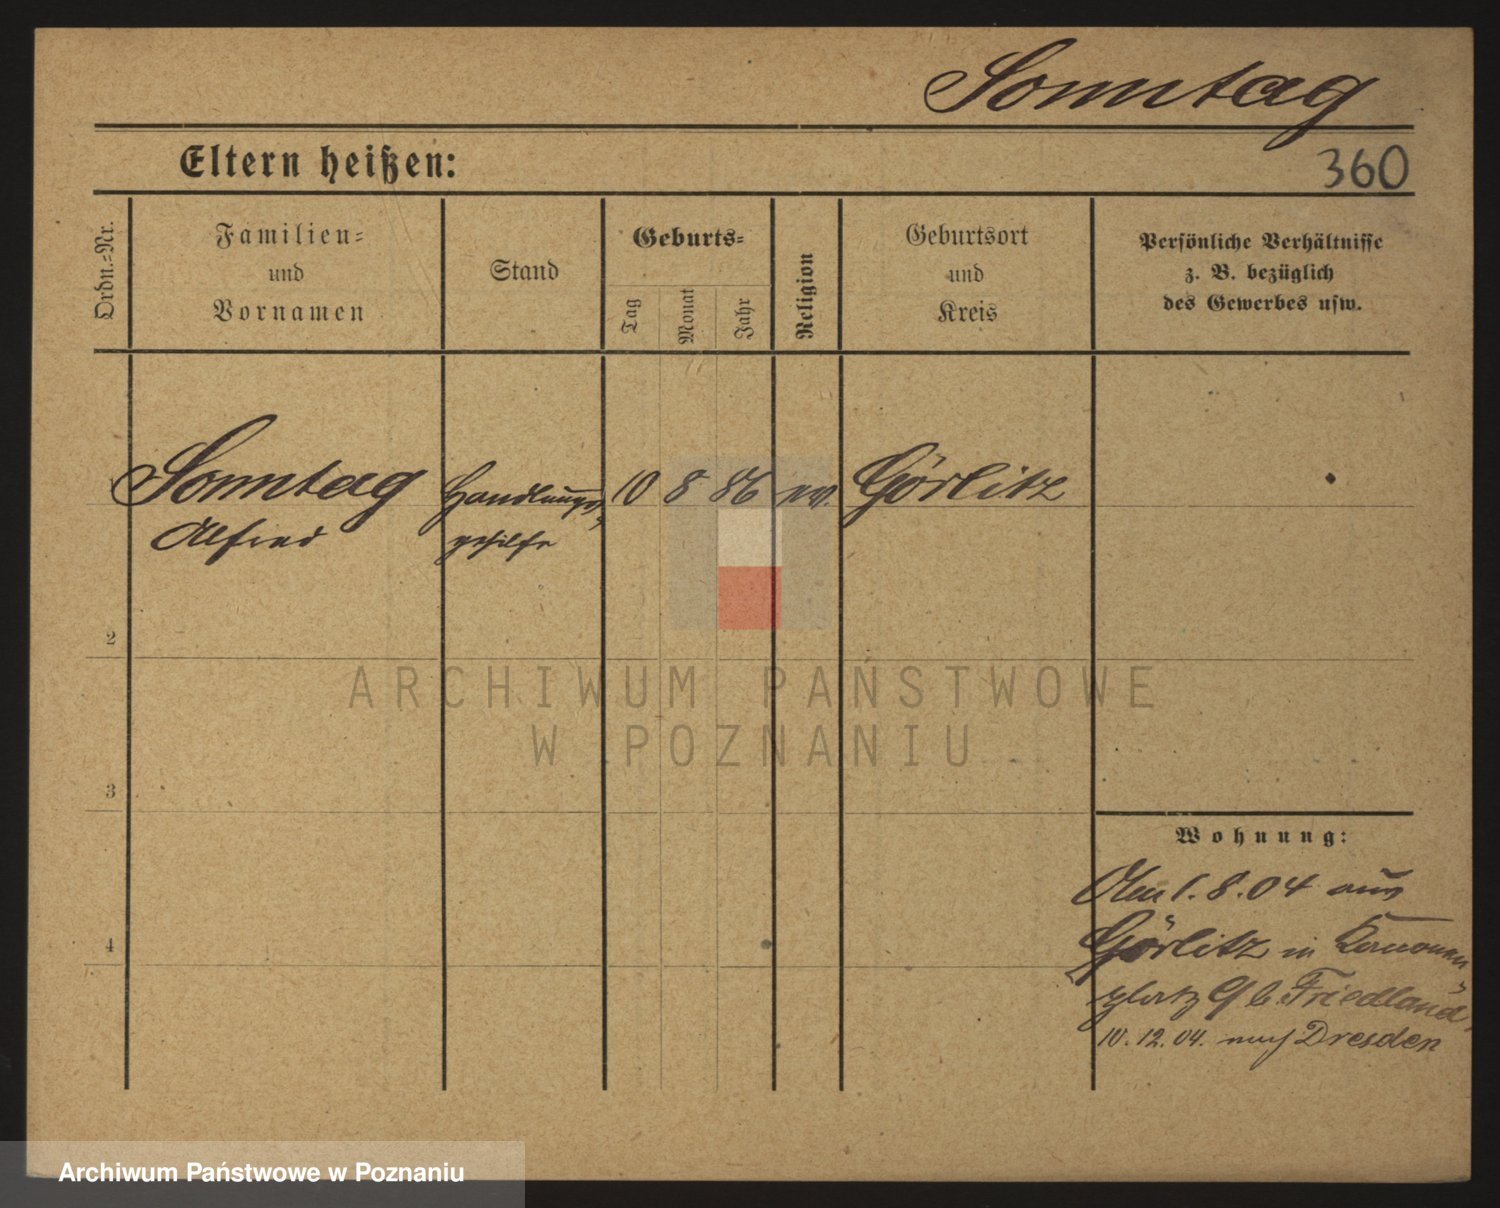 Sonntag
Eltern heißen:
360
Ordn.-Nr.
Familien-
und
Vornamen
Stand
Geburts-
Tag
Monat
Jahr
Religion
Geburtsort
und
Kreis
Persönliche Verhältnisse
z. B. bezüglich
des Gewerbes usw.
1 Sonntag Handlungs- 10 8 86 ev. Görlitz
Alfred gehilfe
2
ARCHIWUM PAŃSTWOWE
W POZNANIU
3
Wohnung:
Am 1. 8. 04 aus
4
Görlitz in Kanonen-
platz 9 b. Friedland
10. 12. 04. nach Dresden
Archiwum Państwowe w Poznaniu